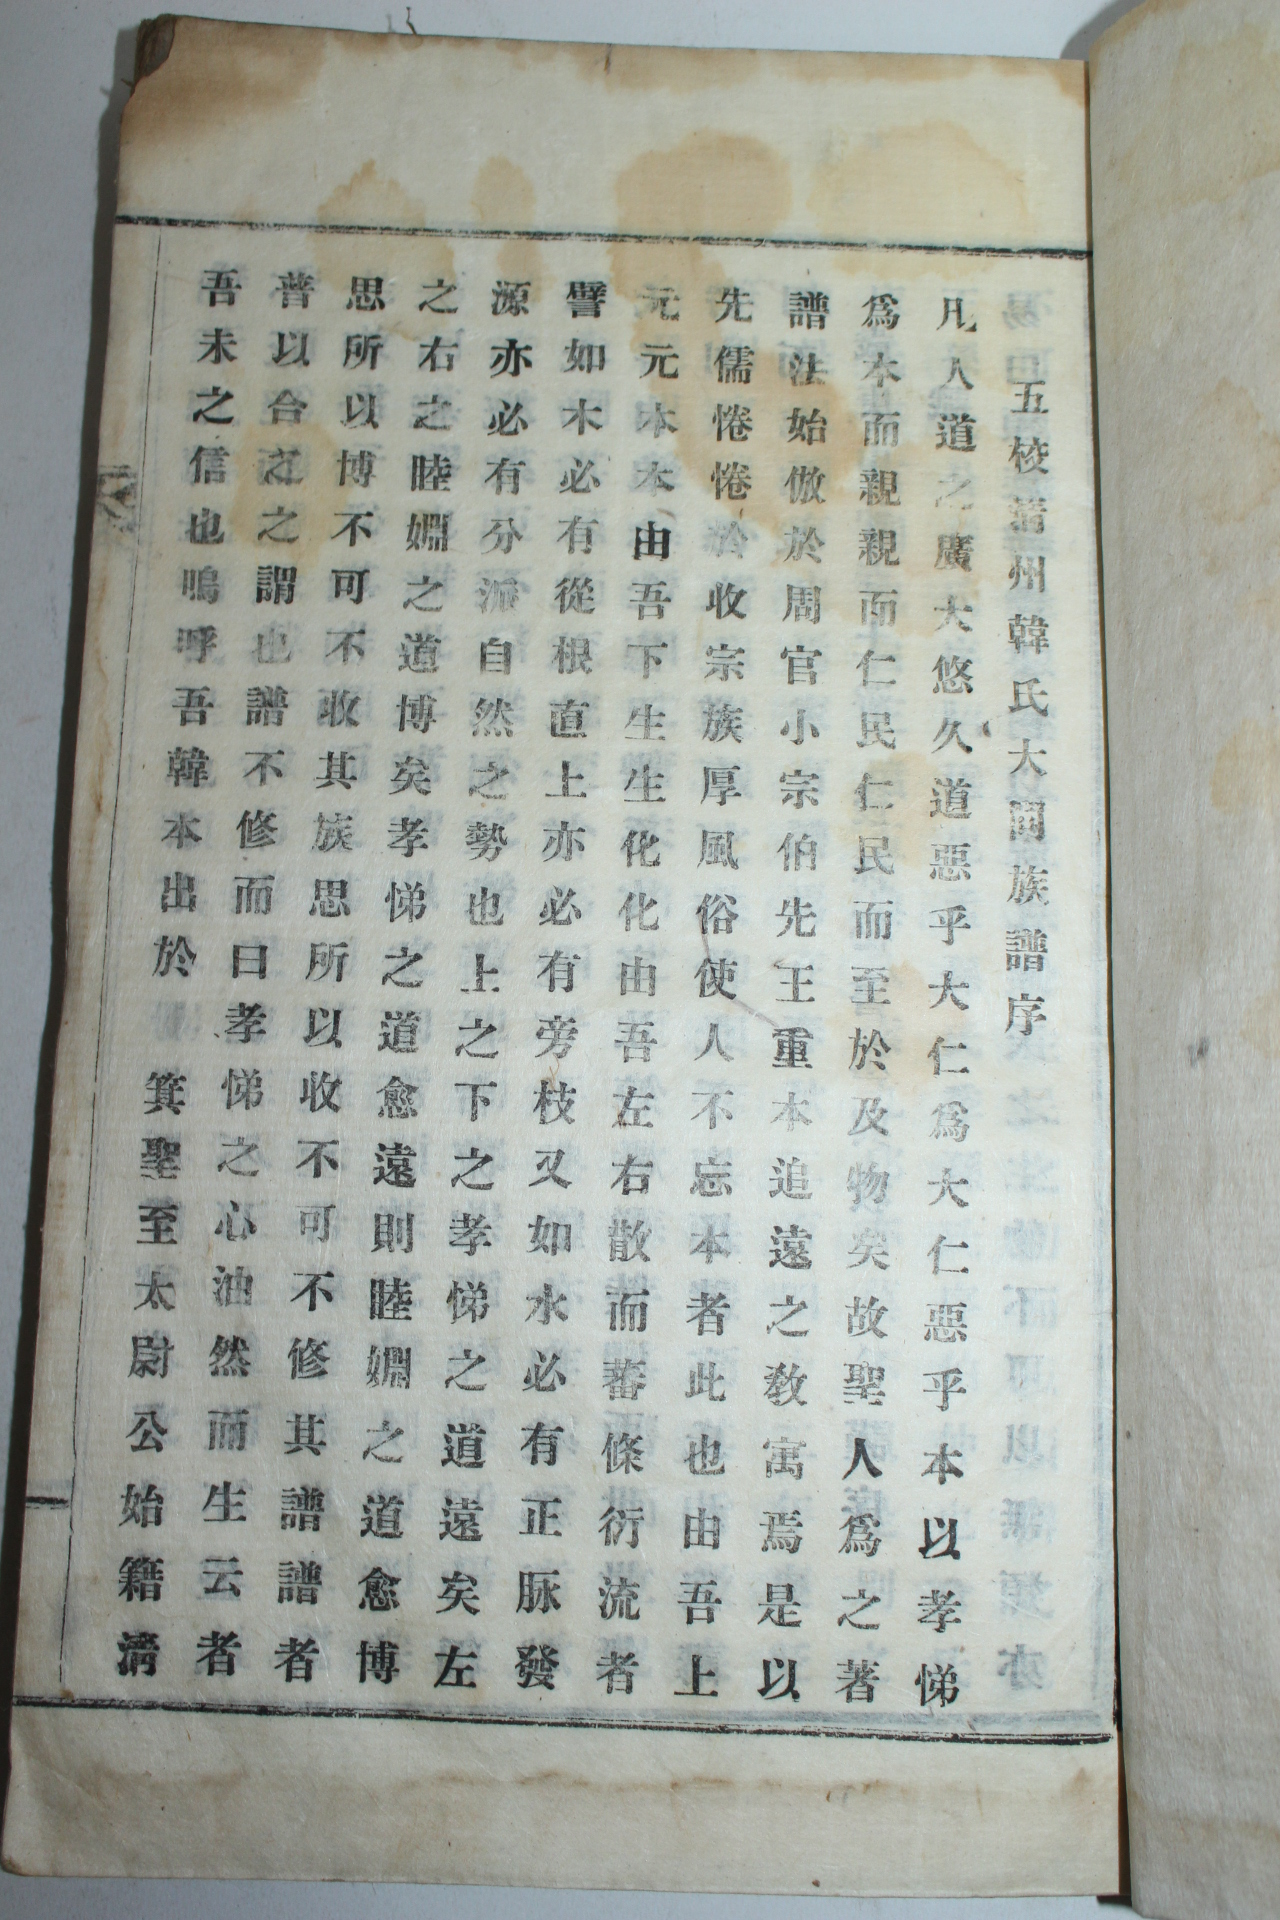 五校淸州韓氏大同族譜序
凡人道之廣大悠久道惡乎大仁爲大仁惡乎本以孝悌
爲本而親親而仁民仁民而至於及物矣故聖人爲之著
譜法始倣於周官小宗伯先王重本追遠之敎寓焉是以
先儒惓惓於收宗族厚風俗使人不忘本者此也由吾上
元元本本由吾下生生化化由吾左右散而蕃條衍流者
譬如木必有從根直上亦必有旁枝又如水必有正脉發
源亦必有分派自然之勢也上之下之孝悌之道遠矣左
之右之睦婣之道博矣孝悌之道愈遠則睦婣之道愈博
思所以博不可不收其族思所以收不可不修其譜譜者
普以合之之謂也譜不修而曰孝悌之心油然而生云者
吾未之信也嗚呼吾韓本出於 箕聖至太尉公始籍淸